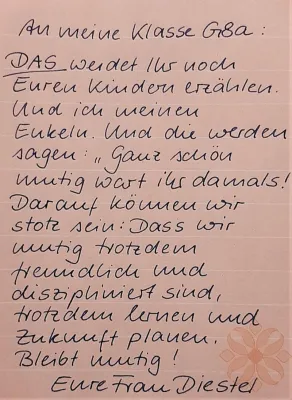 An meine Klasse G8a:
DAS werdet Ihr noch
Euren Kindern erzählen.
Und ich meinen
Enkeln. Und die werden
sagen: „Ganz schön
mutig wart ihr damals!
Darauf können wir
stolz sein: Dass wir
mutig trotzdem
freundlich und
diszipliniert sind,
trotzdem lernen und
Zukunft planen.
Bleibt mutig!
Eure Frau Diestel